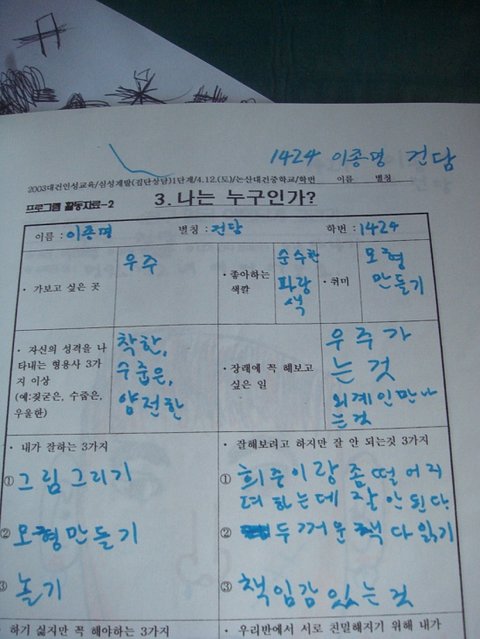 1424 이종명 건담
2003대건인성교육/심성계발(집단상담)1단계/4.12.(토)/논산대건중학교/학번 이름 별칭
프로그램 활동자료-2
3. 나는 누구인가?
이름 : 이종명 별칭 : 건담 학번 : 1424
· 가보고 싶은 곳
우주
· 좋아하는
색깔
순수한
파랑
색
· 취미
모형
만들기
· 자신의 성격을 나
타내는 형용사 3가
지 이상
(예:짖궂은, 수줍은,
우울한)
착한,
수줍은,
얌전한
· 장래에 꼭 해보고
싶은 일
우주가
는 것
외계인만나
는것
· 내가 잘하는 3가지
① 그림그리기
② 모형만들기
③ 놀기
· 잘해보려고 하지만 잘 안 되는것 3가지
① 희준이랑 좀떨어지
려 하는데 잘안된다.
② 두꺼운 책 다읽기
③ 책임감 있는것
· 하기 싫지만 꼭 해야하는 3가지
· 우리반에서 서로 친밀해지기 위해 내가